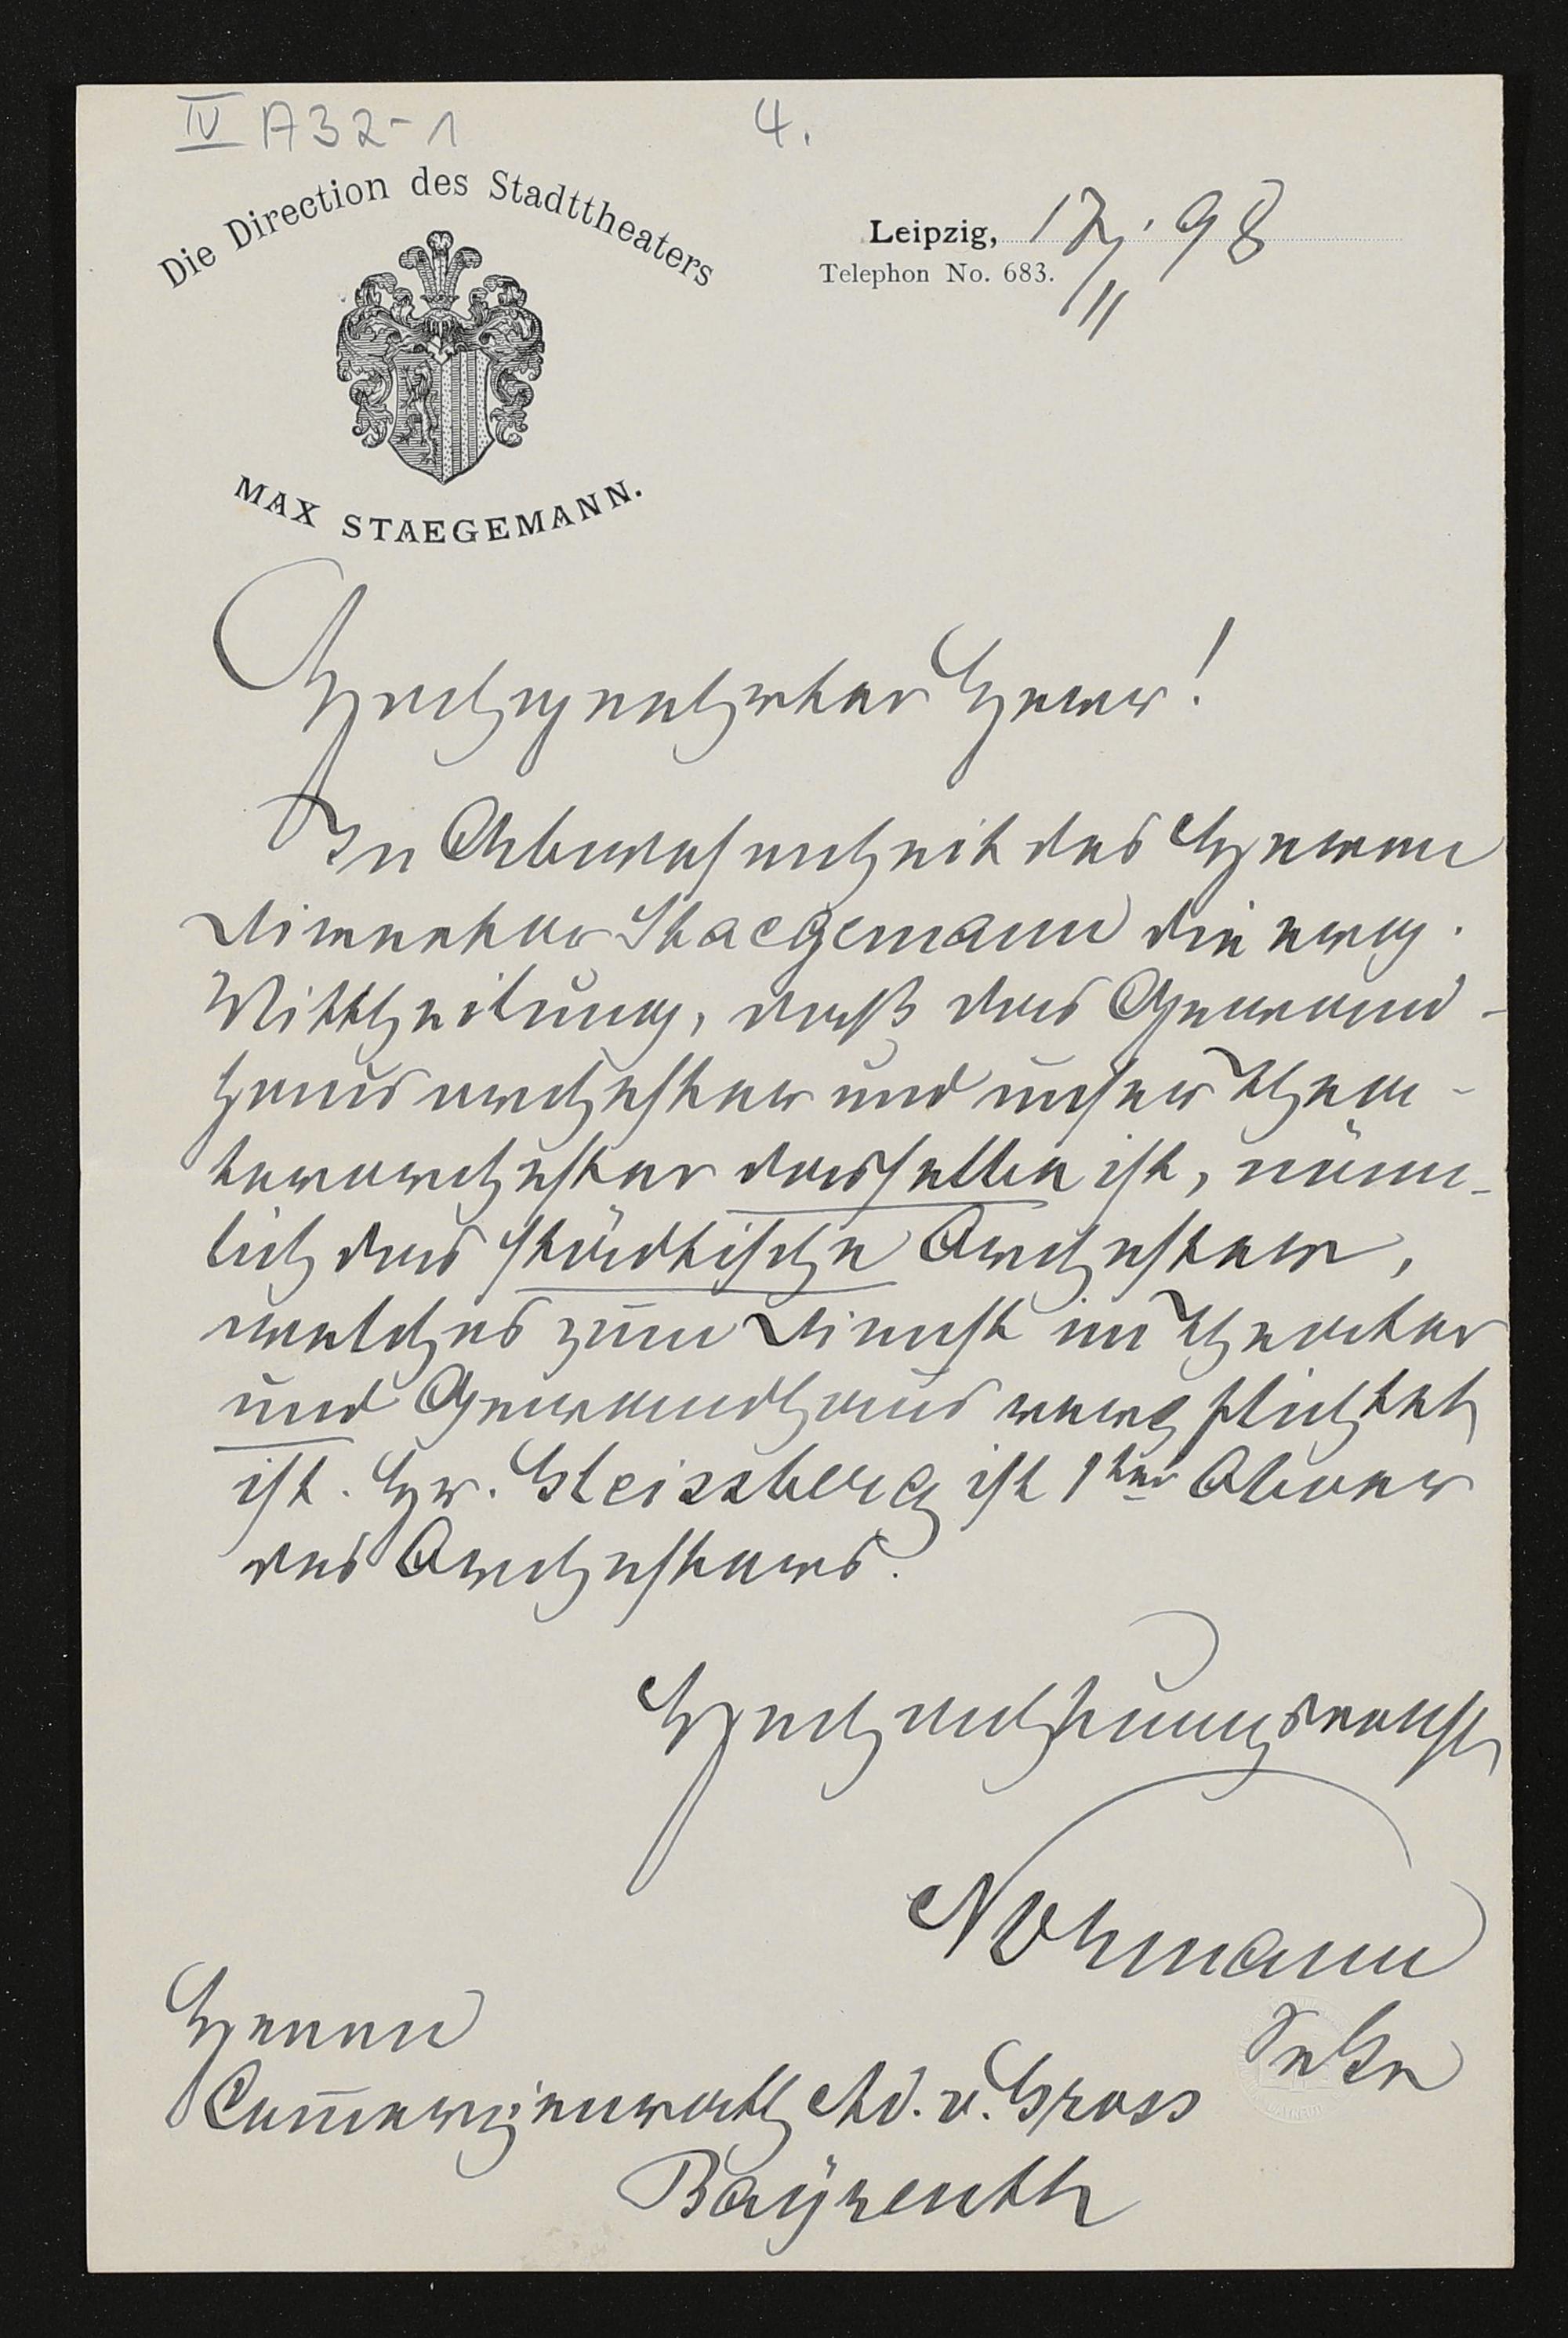 IV A32-1
4.
Die Direction des Stadttheaters
MAX STAEGEMANN.
Leipzig, 17/11 98
Telephon No. 683.
Hochgeehrter Herr!
In Abwesenheit des Herrn
Direktor Staegemann die erg.
Mittheilung, daß das Gewand-
hausorchester und unser Thea-
terorchester dasselbe ist, näm-
lich das städtische Orchester,
welches zum Dienst im Theater
und Gewandhaus verpflichtet
ist. Hr. Gleissberg ist 1ter Oboer
des Orchesters.
Hochachtungsvollst
Sekr
Herrn
Commerzienrath Ad. v. Gross
Bayreuth